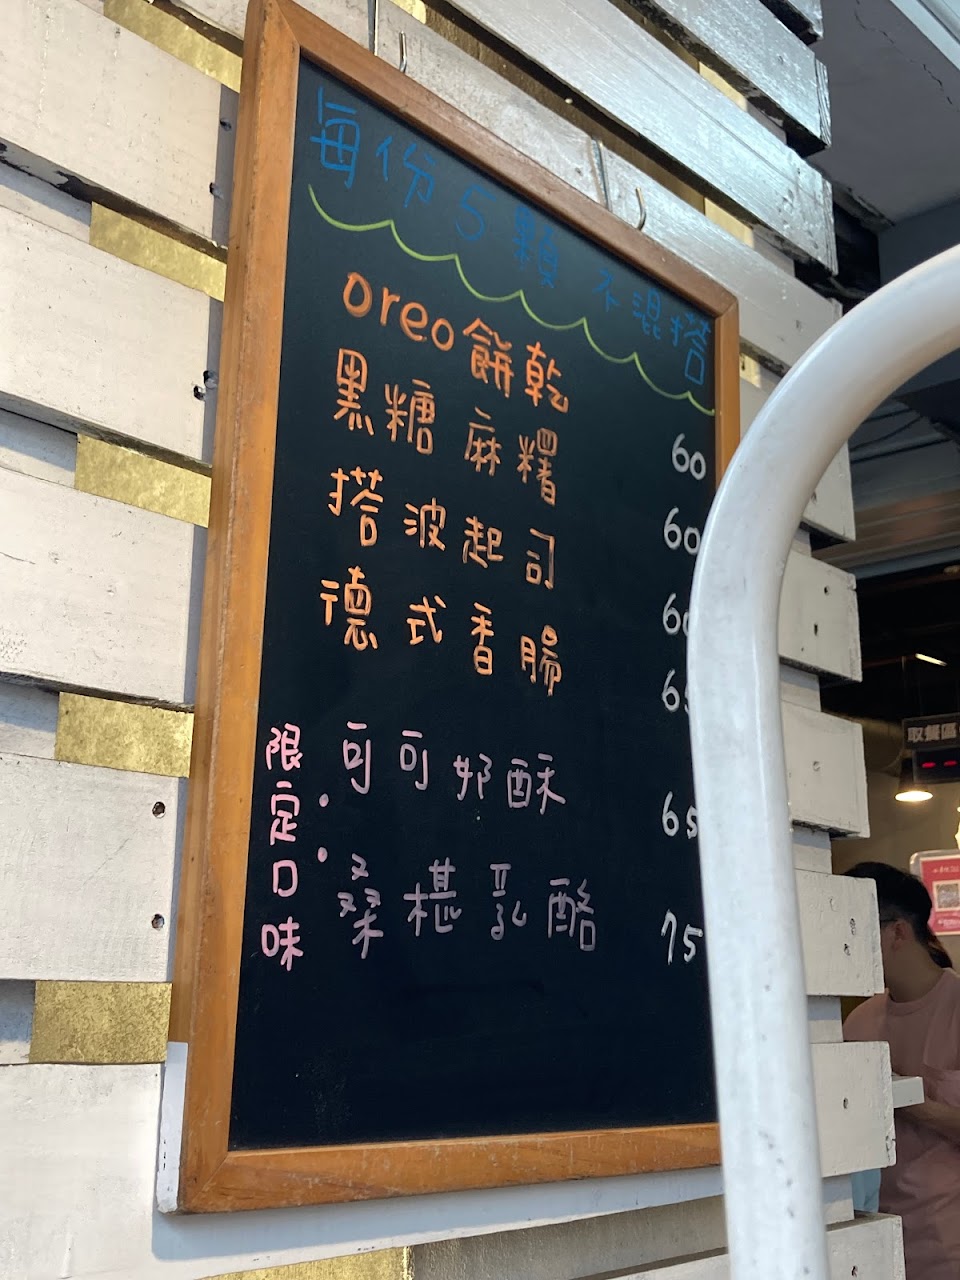 每份5顆 不混搭
oreo餅乾 60
黑糖麻糬 60
搭波起司 60
德式香腸 65
限定口味：
可可奶酥 65
桑椹乳酪 75
取餐區